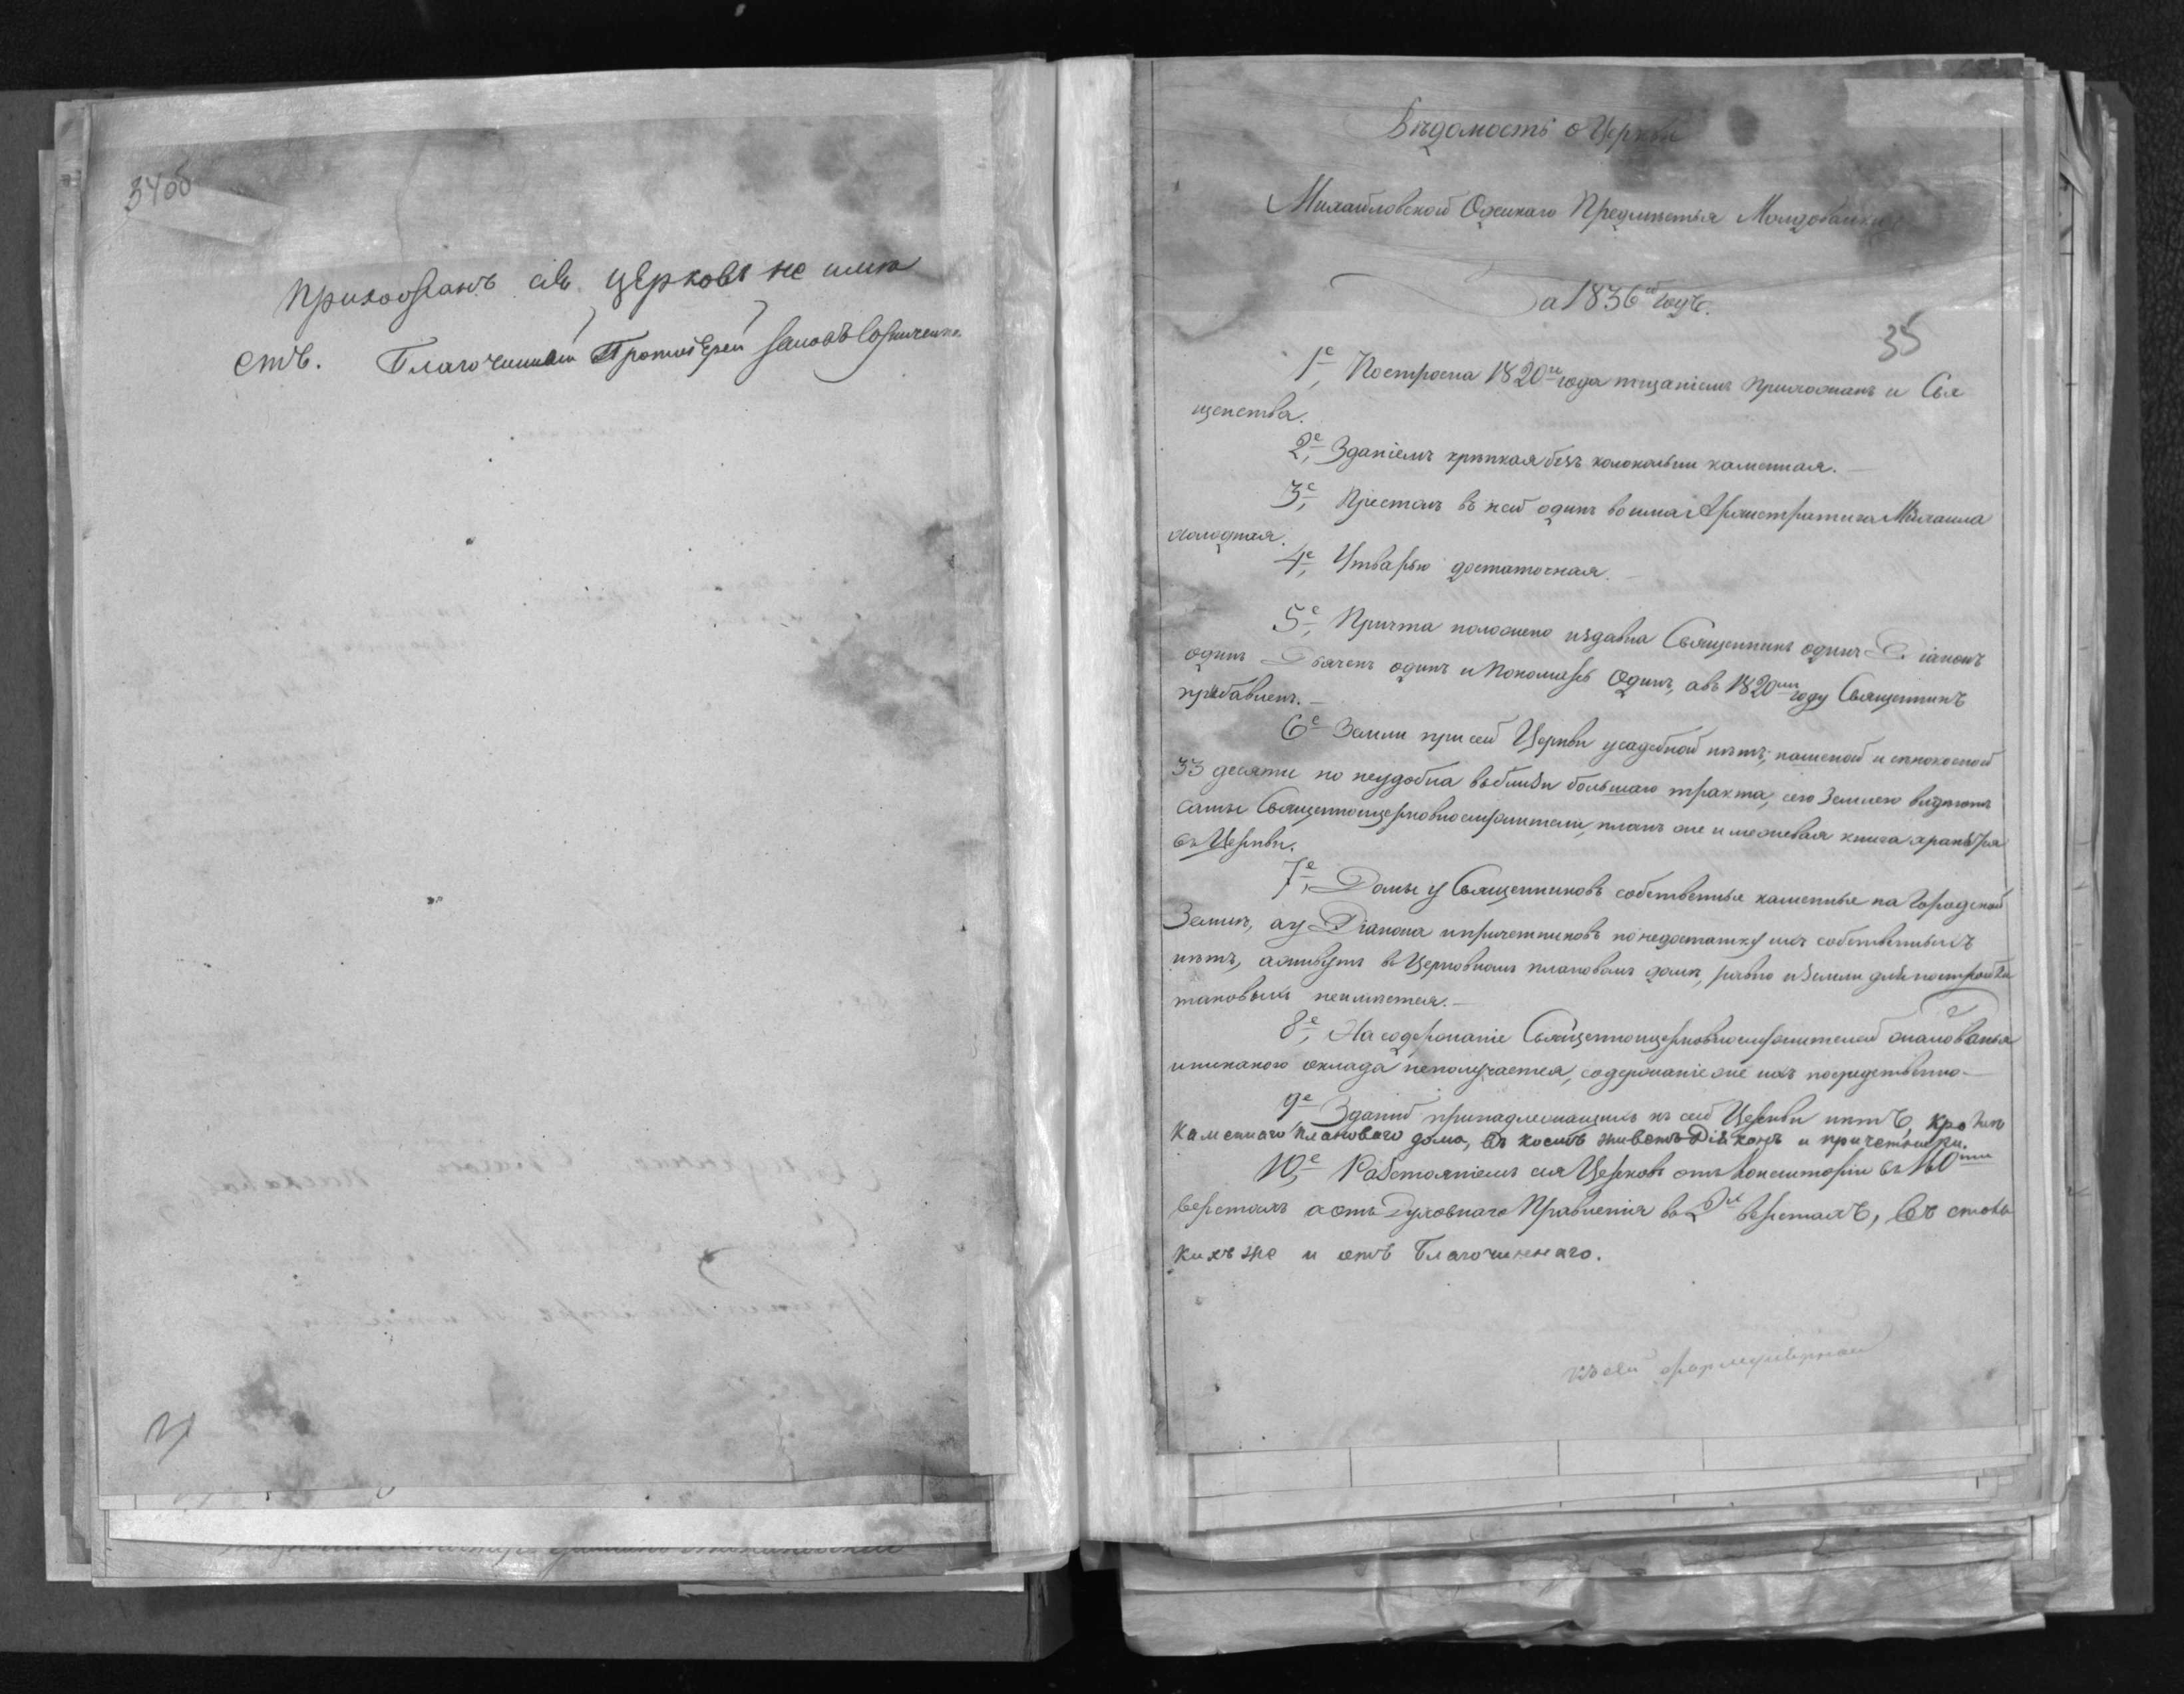 34об
прихожанъ сія церковь не имѣ
етъ. Благочинный Протоіерей
Вѣдомость о Церкви
Михайловской Одескаго Предмѣстья Молдованки
За 1836й годъ.
35
1е, Построена 1820го года тщаніемъ прихожанъ и Свя
щенства.
2е, Зданіемъ крѣпкая безъ колокольни каменная. —
3е, Престолъ въ ней одинъ во имя Архистратига Михаила
холодная.
4е, Утварью достаточная. —
5е, Причта положено издавна Священникъ одинъ Діаконъ
одинъ Дьячекъ одинъ и Пономарь Одинъ, а въ 1820мъ году Священникъ
прибавленъ. —
6е Земли при сей Церкви усадебной нѣтъ; пашеной и сѣнокосной
33 десяти но неудобна въблизи большаго тракта, сею Землею владѣютъ
самы Священноцерковнослужители, планъ же и межевая книга хранятся
въ Церкви.
7е, Домы у Священниковъ собственныя каменныя на Городской
Землѣ, а у Діакона и причетниковъ по недостатку ихъ собственныхъ
нѣтъ, а живутъ въ Церковномъ плановомъ домѣ, равно и Земли для постройки
таковыхъ неимѣется. —
8е, На содержаніе Священноцерковнослужителей жалованья
и никакого оклада неполучается, содержаніе же ихъ посредственно. —
9е Зданій принадлежащихъ къ сей Церкви нѣтъ, кромѣ
Каменнаго планового дома, въ коемъ живетъ Діаконъ и причетники.
10е, Разстояніемъ сія Церковь отъ Консисторіи въ 160ти
верстахъ а отъ Духовнаго Правленія въ 2хъ верстахъ, въ стольки
кихъ же и отъ Благочиннаго.
къ сей формулярной